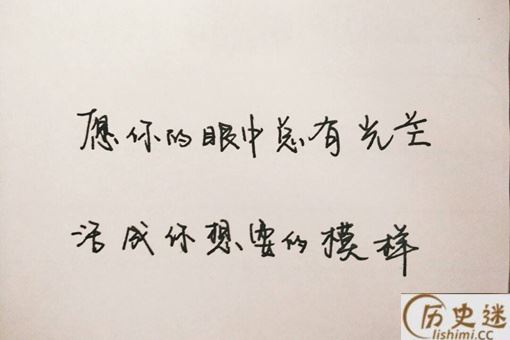 愿你的眼中总有光芒
活成你想要的模样
历史迷
lishimi.cc